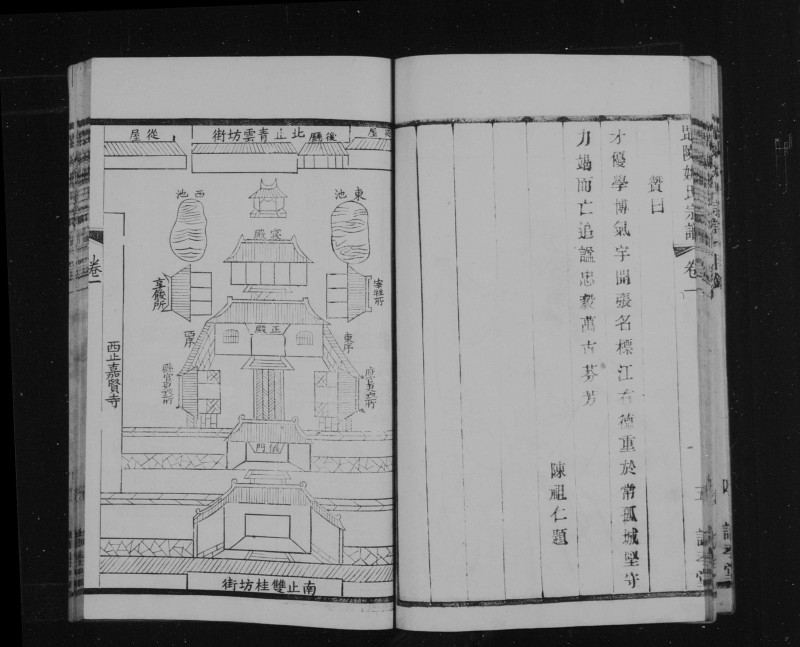 毘陵姚氏宗譜
卷一
贊曰
才優學博氣宇開張名標江右德重於常孤城堅守
力竭而亡追諡忠毅萬古芬芳
陳祖仁題
後廳
北止青雲坊街
從屋
東池
西池
寢殿
宰牲所
享餕所
正殿
東序
西序
儀門
西止嘉賢寺
南止雙桂坊街
卷一